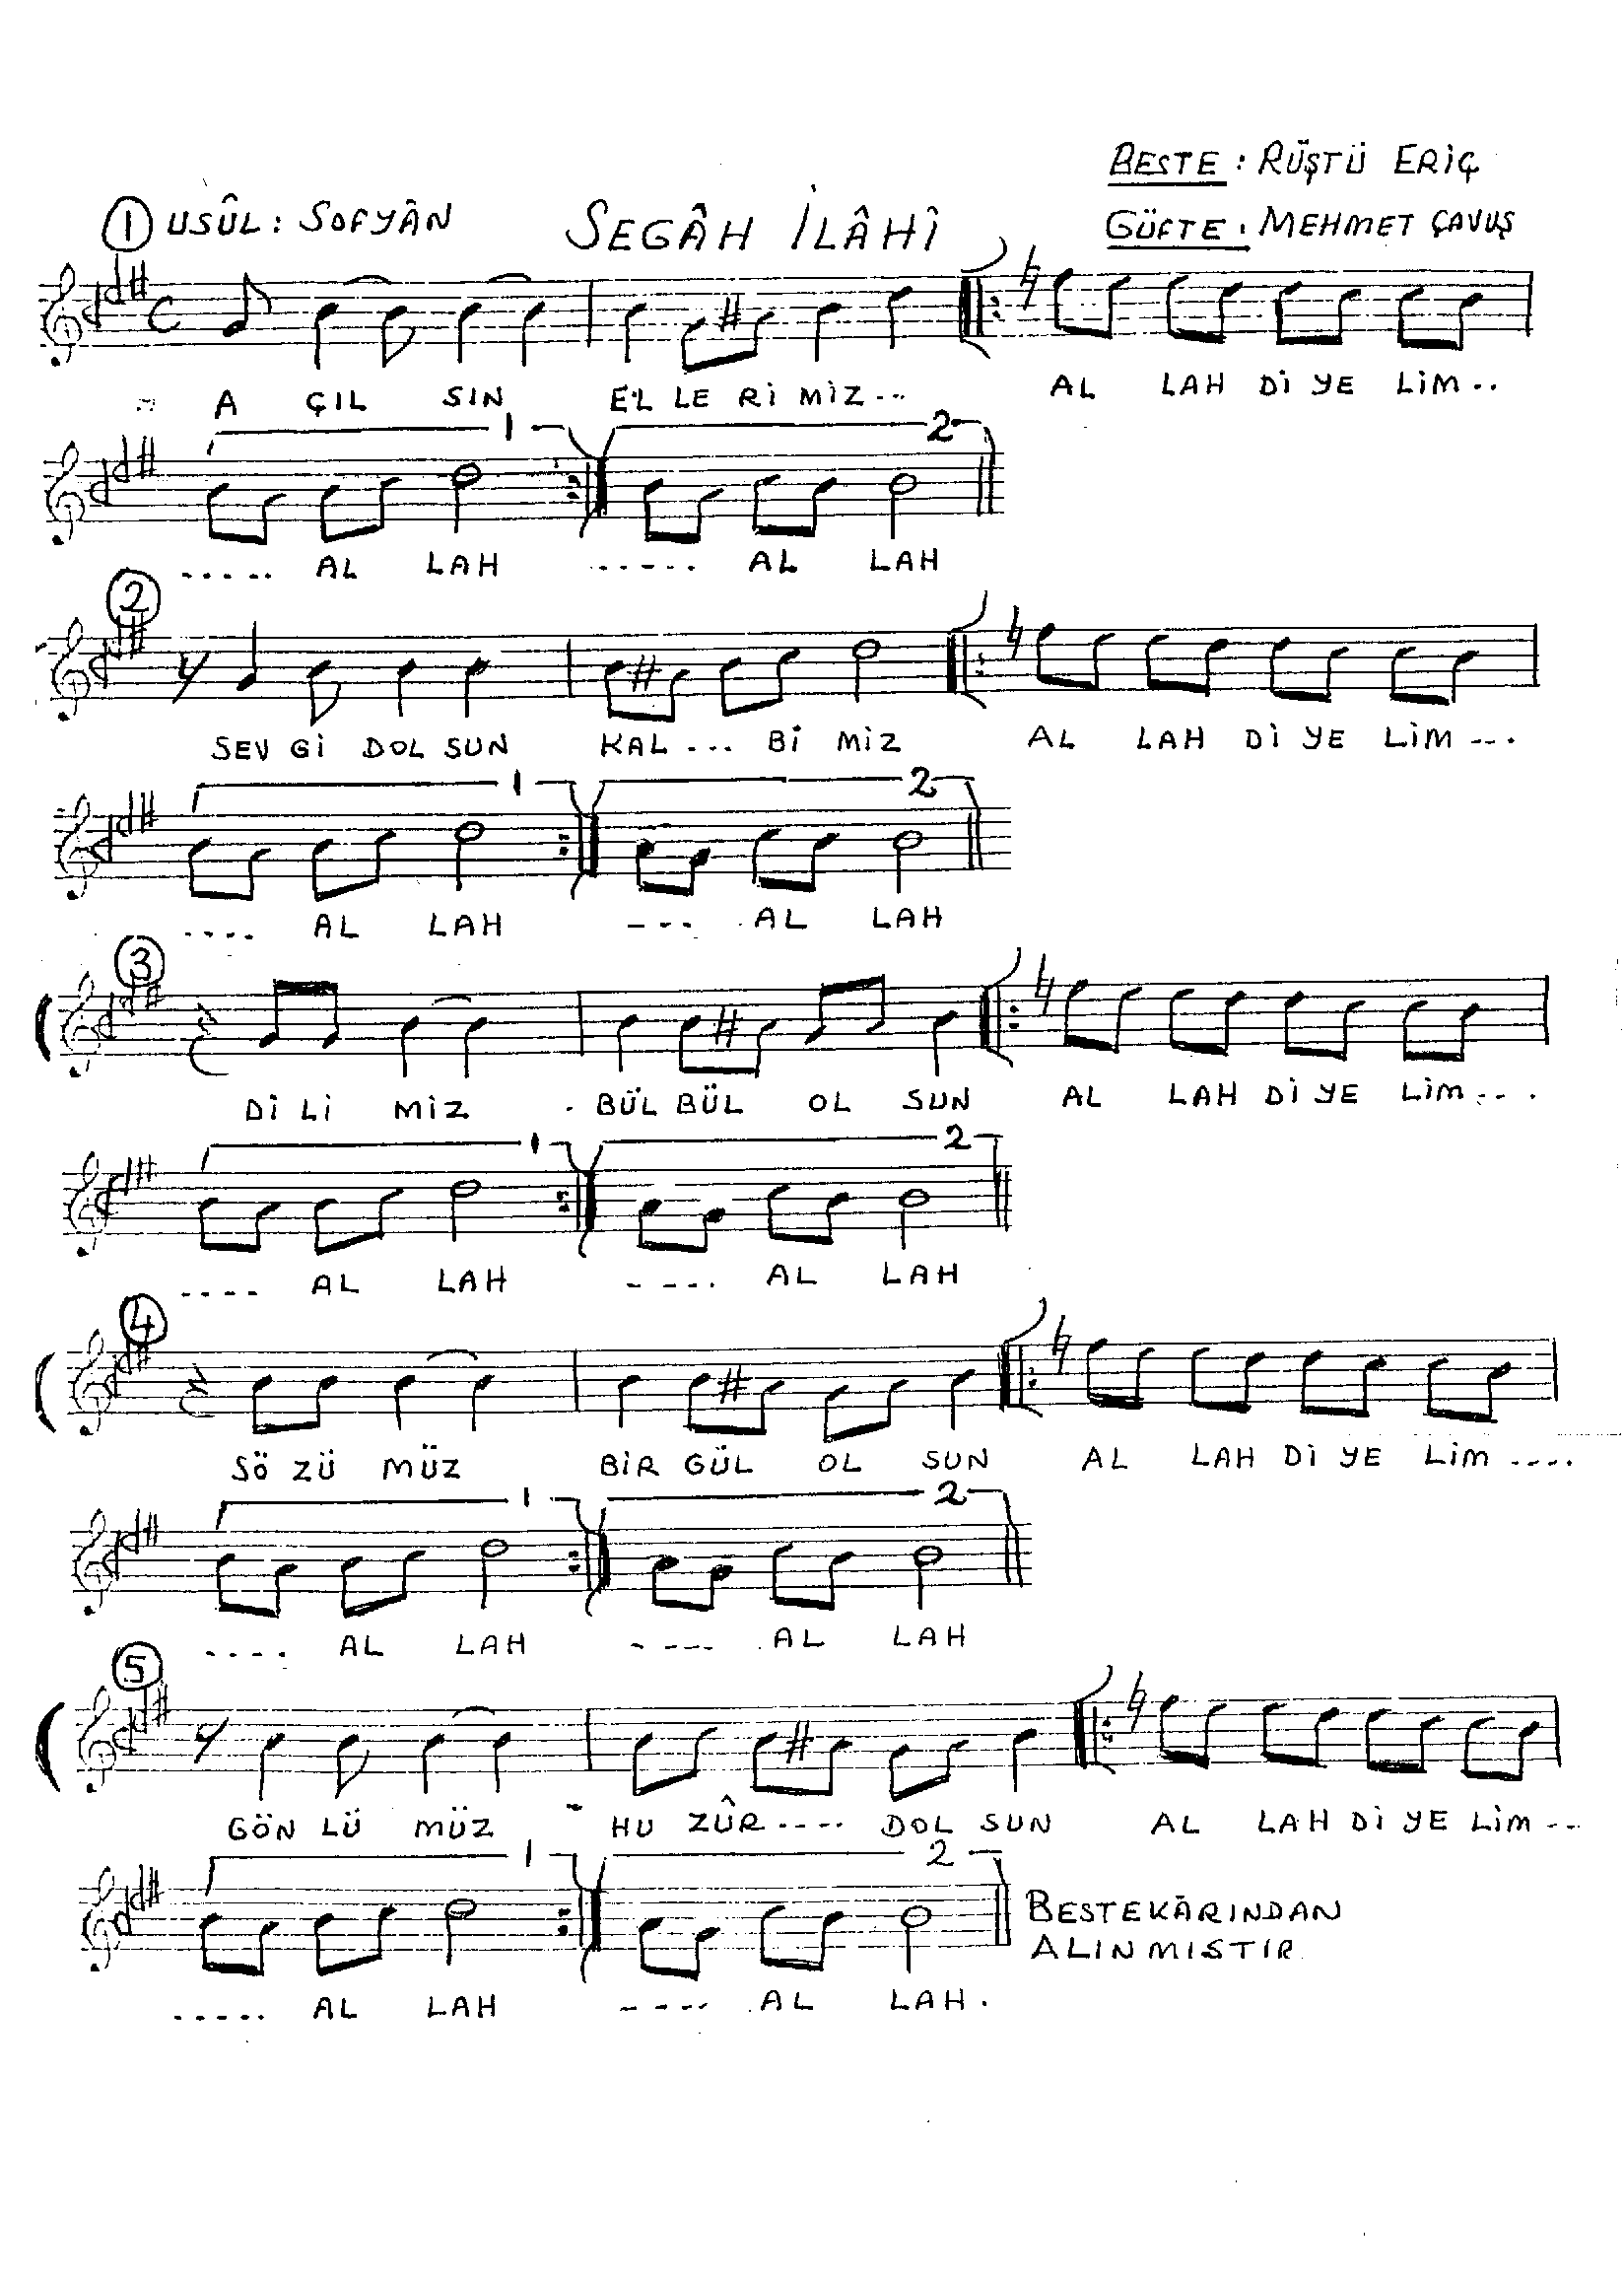 BESTE : RÜŞTÜ ERİÇ
1 USÛL : SOFYÂN SEGÂH İLÂHÎ GÜFTE : MEHMET ÇAVUŞ
A ÇIL SIN EL LE Rİ MİZ... AL LAH Dİ YE LİM..
1 2
..... AL LAH ...... AL LAH
2
SEV Gİ DOL SUN KAL --- Bİ MİZ AL LAH Dİ YE LİM ---.
1 2
.... AL LAH ---. AL LAH
3
Dİ Lİ MİZ BÜL BÜL OL SUN AL LAH Dİ YE LİM ---.
1 2
---- AL LAH ---. AL LAH
4
SÖ ZÜ MÜZ BİR GÜL OL SUN AL LAH Dİ YE LİM ----.
1 2
----. AL LAH ---- AL LAH
5
GÖN LÜ MÜZ HU ZÛR ---- DOL SUN AL LAH Dİ YE LİM ---
1 2
BESTEKÂRINDAN
ALINMISTIR
----- AL LAH ---- AL LAH.